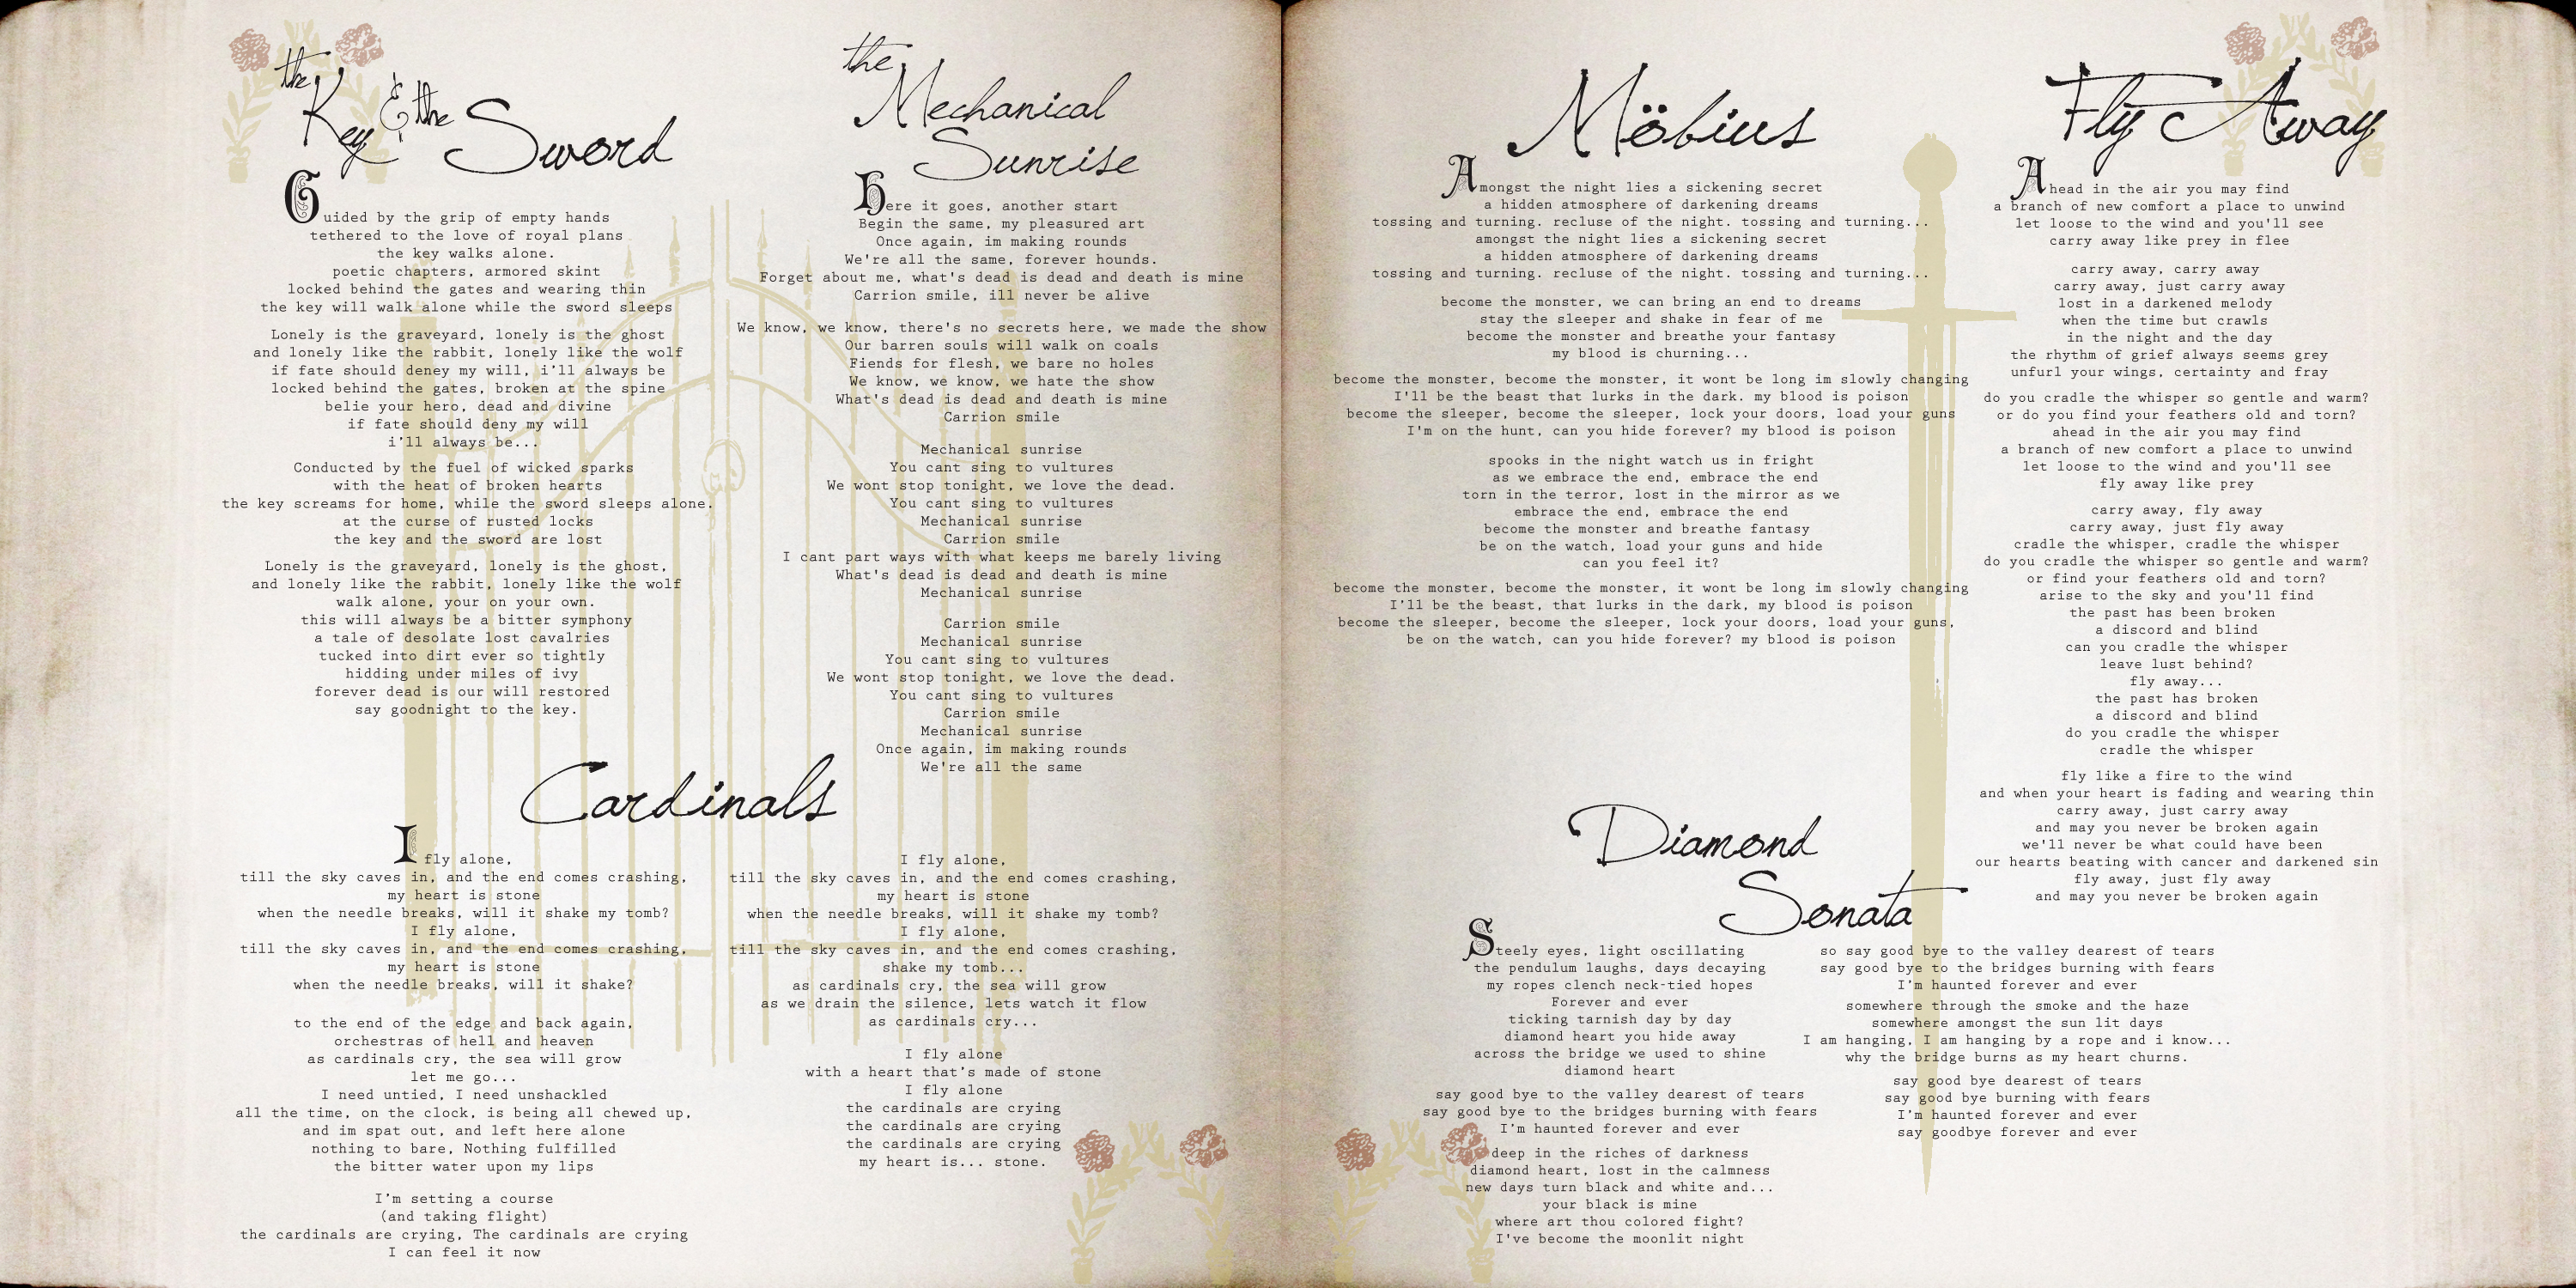 the
Key & the Sword
Guided by the grip of empty hands
tethered to the love of royal plans
the key walks alone.
poetic chapters, armored skint
locked behind the gates and wearing thin
the key will walk alone while the sword sleeps
Lonely is the graveyard, lonely is the ghost
and lonely like the rabbit, lonely like the wolf
if fate should deney my will, i'll always be
locked behind the gates, broken at the spine
belie your hero, dead and divine
if fate should deny my will
i'll always be...
Conducted by the fuel of wicked sparks
with the heat of broken hearts
the key screams for home, while the sword sleeps alone.
at the curse of rusted locks
the key and the sword are lost
Lonely is the graveyard, lonely is the ghost,
and lonely like the rabbit, lonely like the wolf
walk alone, your on your own.
this will always be a bitter symphony
a tale of desolate lost cavalries
tucked into dirt ever so tightly
hidding under miles of ivy
forever dead is our will restored
say goodnight to the key.
the
Mechanical
Sunrise
Here it goes, another start
Begin the same, my pleasured art
Once again, im making rounds
We're all the same, forever hounds.
Forget about me, what's dead is dead and death is mine
Carrion smile, ill never be alive
We know, we know, there's no secrets here, we made the show
Our barren souls will walk on coals
Fiends for flesh, we bare no holes
We know, we know, we hate the show
What's dead is dead and death is mine
Carrion smile
Mechanical sunrise
You cant sing to vultures
We wont stop tonight, we love the dead.
You cant sing to vultures
Mechanical sunrise
Carrion smile
I cant part ways with what keeps me barely living
What's dead is dead and death is mine
Mechanical sunrise
Carrion smile
Mechanical sunrise
You cant sing to vultures
We wont stop tonight, we love the dead.
You cant sing to vultures
Carrion smile
Mechanical sunrise
Once again, im making rounds
We're all the same
Cardinals
I fly alone,
till the sky caves in, and the end comes crashing,
my heart is stone
when the needle breaks, will it shake my tomb?
I fly alone,
till the sky caves in, and the end comes crashing,
my heart is stone
when the needle breaks, will it shake?
to the end of the edge and back again,
orchestras of hell and heaven
as cardinals cry, the sea will grow
let me go...
I need untied, I need unshackled
all the time, on the clock, is being all chewed up,
and im spat out, and left here alone
nothing to bare, Nothing fulfilled
the bitter water upon my lips
I'm setting a course
(and taking flight)
the cardinals are crying, The cardinals are crying
I can feel it now
I fly alone,
till the sky caves in, and the end comes crashing,
my heart is stone
when the needle breaks, will it shake my tomb?
I fly alone,
till the sky caves in, and the end comes crashing,
shake my tomb...
as cardinals cry, the sea will grow
as we drain the silence, lets watch it flow
as cardinals cry...
I fly alone
with a heart that's made of stone
I fly alone
the cardinals are crying
the cardinals are crying
the cardinals are crying
my heart is... stone.
Möbius
Amongst the night lies a sickening secret
a hidden atmosphere of darkening dreams
tossing and turning. recluse of the night. tossing and turning...
amongst the night lies a sickening secret
a hidden atmosphere of darkening dreams
tossing and turning. recluse of the night. tossing and turning...
become the monster, we can bring an end to dreams
stay the sleeper and shake in fear of me
become the monster and breathe your fantasy
my blood is churning...
become the monster, become the monster, it wont be long im slowly changing
I'll be the beast that lurks in the dark. my blood is poison
become the sleeper, become the sleeper, lock your doors, load your guns
I'm on the hunt, can you hide forever? my blood is poison
spooks in the night watch us in fright
as we embrace the end, embrace the end
torn in the terror, lost in the mirror as we
embrace the end, embrace the end
become the monster and breathe fantasy
be on the watch, load your guns and hide
can you feel it?
become the monster, become the monster, it wont be long im slowly changing
I'll be the beast, that lurks in the dark, my blood is poison
become the sleeper, become the sleeper, lock your doors, load your guns,
be on the watch, can you hide forever? my blood is poison
Fly Away
Ahead in the air you may find
a branch of new comfort a place to unwind
let loose to the wind and you'll see
carry away like prey in flee
carry away, carry away
carry away, just carry away
lost in a darkened melody
when the time but crawls
in the night and the day
the rhythm of grief always seems grey
unfurl your wings, certainty and fray
do you cradle the whisper so gentle and warm?
or do you find your feathers old and torn?
ahead in the air you may find
a branch of new comfort a place to unwind
let loose to the wind and you'll see
fly away like prey
carry away, fly away
carry away, just fly away
cradle the whisper, cradle the whisper
do you cradle the whisper so gentle and warm?
or find your feathers old and torn?
arise to the sky and you'll find
the past has been broken
a discord and blind
can you cradle the whisper
leave lust behind?
fly away...
the past has broken
a discord and blind
do you cradle the whisper
cradle the whisper
fly like a fire to the wind
and when your heart is fading and wearing thin
carry away, just carry away
and may you never be broken again
we'll never be what could have been
our hearts beating with cancer and darkened sin
fly away, just fly away
and may you never be broken again
Diamond
Sonata
Steely eyes, light oscillating
the pendulum laughs, days decaying
my ropes clench neck-tied hopes
Forever and ever
ticking tarnish day by day
diamond heart you hide away
across the bridge we used to shine
diamond heart
say good bye to the valley dearest of tears
say good bye to the bridges burning with fears
I'm haunted forever and ever
deep in the riches of darkness
diamond heart, lost in the calmness
new days turn black and white and...
your black is mine
where art thou colored fight?
I've become the moonlit night
so say good bye to the valley dearest of tears
say good bye to the bridges burning with fears
I'm haunted forever and ever
somewhere through the smoke and the haze
somewhere amongst the sun lit days
I am hanging, I am hanging by a rope and i know...
why the bridge burns as my heart churns.
say good bye dearest of tears
say good bye burning with fears
I'm haunted forever and ever
say goodbye forever and ever